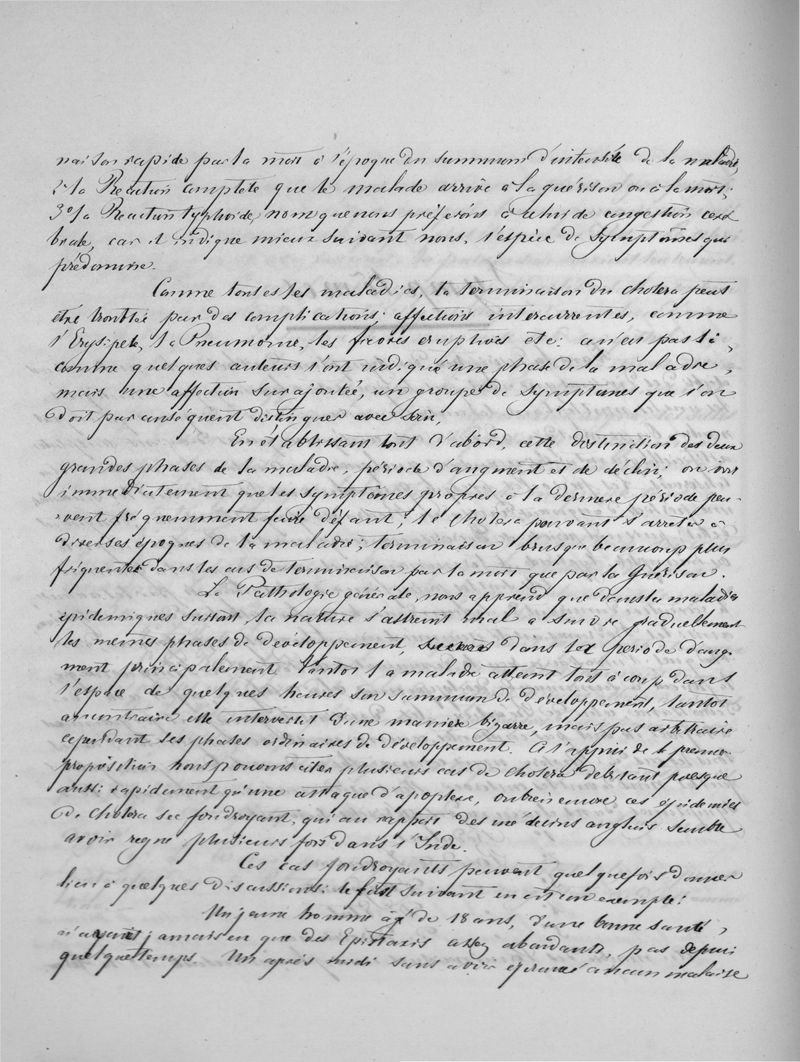 naison rapide par la mort à l'époque du summum d'intensité de la maladie,
2º la Réaction complète que le malade arrive à la guérison ou à la mort;
3º la Réaction typhoïde, nom que nous préférons à celui de congestion céré
brale, car il indique mieux suivant nous, l'espèce de symptômes qui
prédomine.
Comme toutes les maladies, la terminaison du choléra peut
être troublée par des complications; affections intercurrentes, comme
l'Erysipele, la Pneumonie, les fièvres eruptives etc: ce n'est pas là,
comme quelques auteurs l'ont indiqué une phase de la maladie,
mais une affection surajoutée, un groupe de symptômes que l'on
doit par conséquent distinguer avec soin,
En établissant tout d'abord, cette distinction des deux
grandes phases de la maladie; période d'augment et de déclin; on voit
immédiatement que les symptômes propres à la dernière période peu-
vent fréquemment faire défaut; le choléra pouvant s'arrêter à
diverses époques de la maladie; terminaison brusque beaucoup plus
fréquente dans les cas de terminaison par la mort que par la Guérison.
La Pathologie générale, nous apprend que dans les maladies
épidemiques surtout, la nature s'astreint mal à suivre graduellement
les mêmes phases de développement, dans la période d'aug-
ment principalement. Tantôt la maladie atteint tout à coup dans
l'espace de quelques heures son summum de développement, tantôt
au contraire elle intervertit d'une manière bizarre, mais pas arbitraire
cependant ses phases ordinaires de développement. A l'appui de la première
proposition nous pouvons citer plusieurs cas de choléra débutant presque
aussi rapidement qu'une attaque d'apoplexie, ou bien encore, ces épidémies
de choléra sec foudroyant, qui au rapport des médecins anglais semble
avoir regné plusieurs fois dans l'Inde.
Ces cas foudroyants peuvent quelquefois donner
lieu à quelques discussions: le fait suivant en est un exemple:
Un jeune homme âgé de 18 ans, d'une bonne santé,
n'ayant jamais eu que des Epistaxis assez abondants, pas depuis
quelque temps. Un après midi sans avoir éprouvé aucun malaise